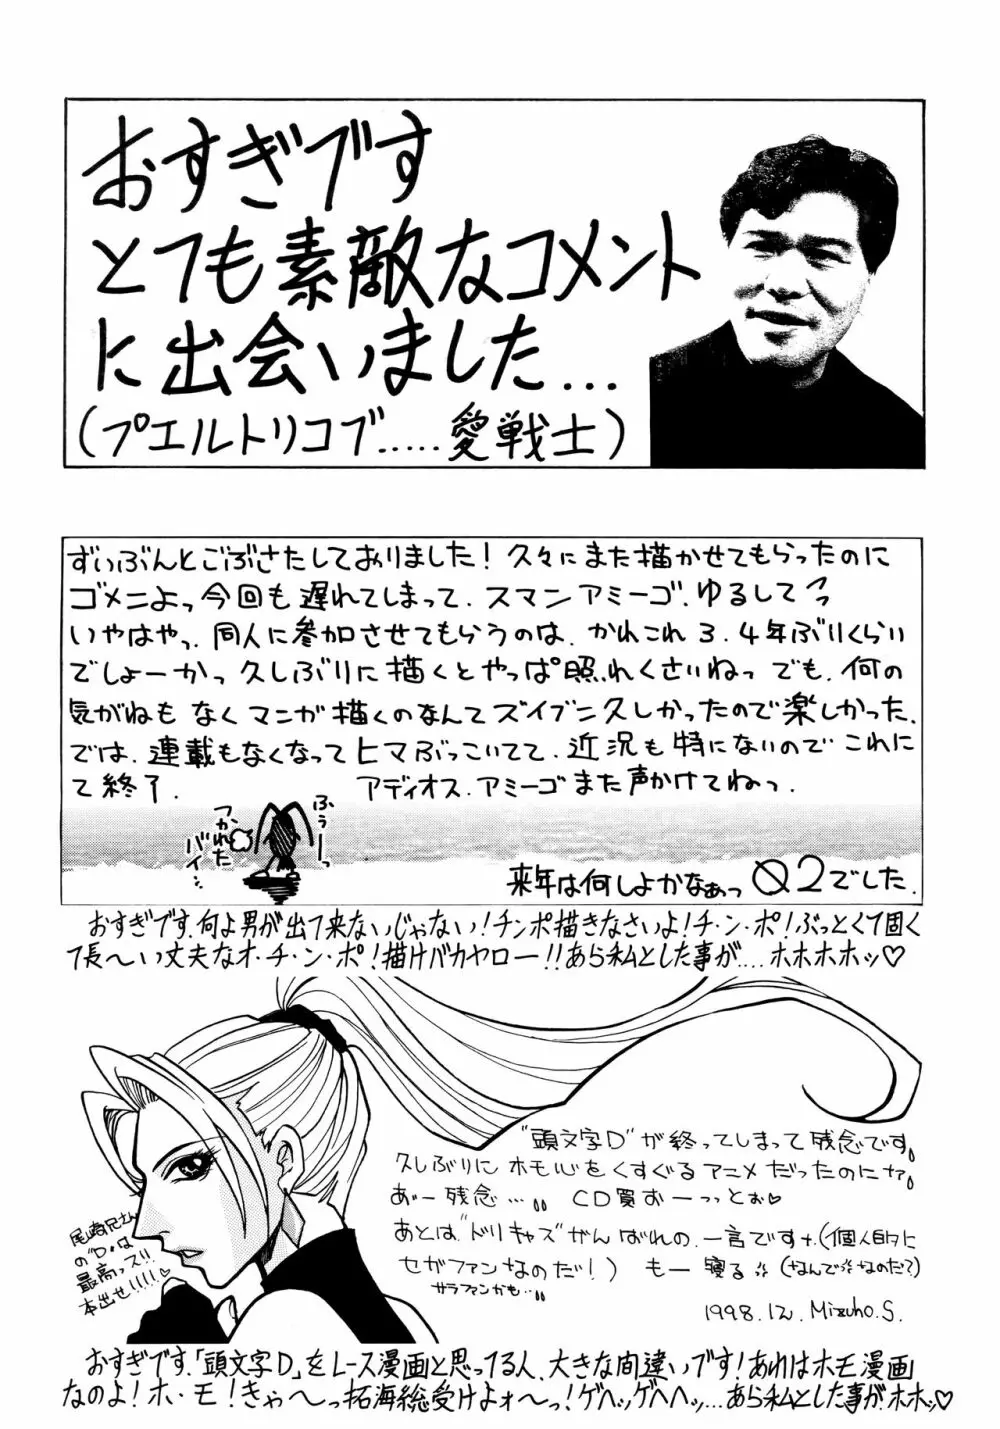 おすぎです
とても素敵なコメント
に出会いました...
(プエルトリコブ.....愛戦士)
ずいぶんとごぶさたしておりました！久々にまた描かせてもらったのに
ゴメニよっ今回も遅れてしまって、スマンアミーゴ、ゆるしてっ
いやはやっ、同人に参加させてもらうのは、かれこれ3、4年ぶりくらい
でしょーかっ久しぶりに描くとやっぱ照れくさいねっでも、何の
気がねもなくマンガ描くのなんてズイブン久しかったので楽しかった、
では、連載もなくなってヒマぶっこいてて、近況も特にないのでこれに
て終了.
アディオス、アミーゴまた声かけてねっ.
ふぅーっ
つかれた
バイ...
来年は何しよかなぁっ Ø2でした.
おすぎです、何よ男が出て来ないじゃない！チンポ描きなさいよ！チ・ン・ポ！ぶっとくて固く
て長〜い丈夫なオ・チ・ン・ポ！描けバカヤロー！！あら私とした事が....ホホホホッ♡
"頭文字D"が終ってしまって残念です。
久しぶりにホモ心をくすぐるアニメだったのにナァ。
あー残念... CD買おーっっとぉ♡
あとは"ドリキャス"がんばれの、一言ですナ、(個人的に
セガファンなのだ！) もー寝る (なんでなのだ？)
サラファンかも...
1998.12. Mizuho.S.
尾崎兄さん
の"D"は
最高っス！！
本出せ！！！！！♡
おすぎです、「頭文字D」をレース漫画と思ってる人、大きな間違いです！あれはホモ漫画
なのよ！ホ・モ！きゃ〜っ拓海総受けよォ〜っ！ゲヘッゲヘヘッ...あら私とした事がホホッ♡